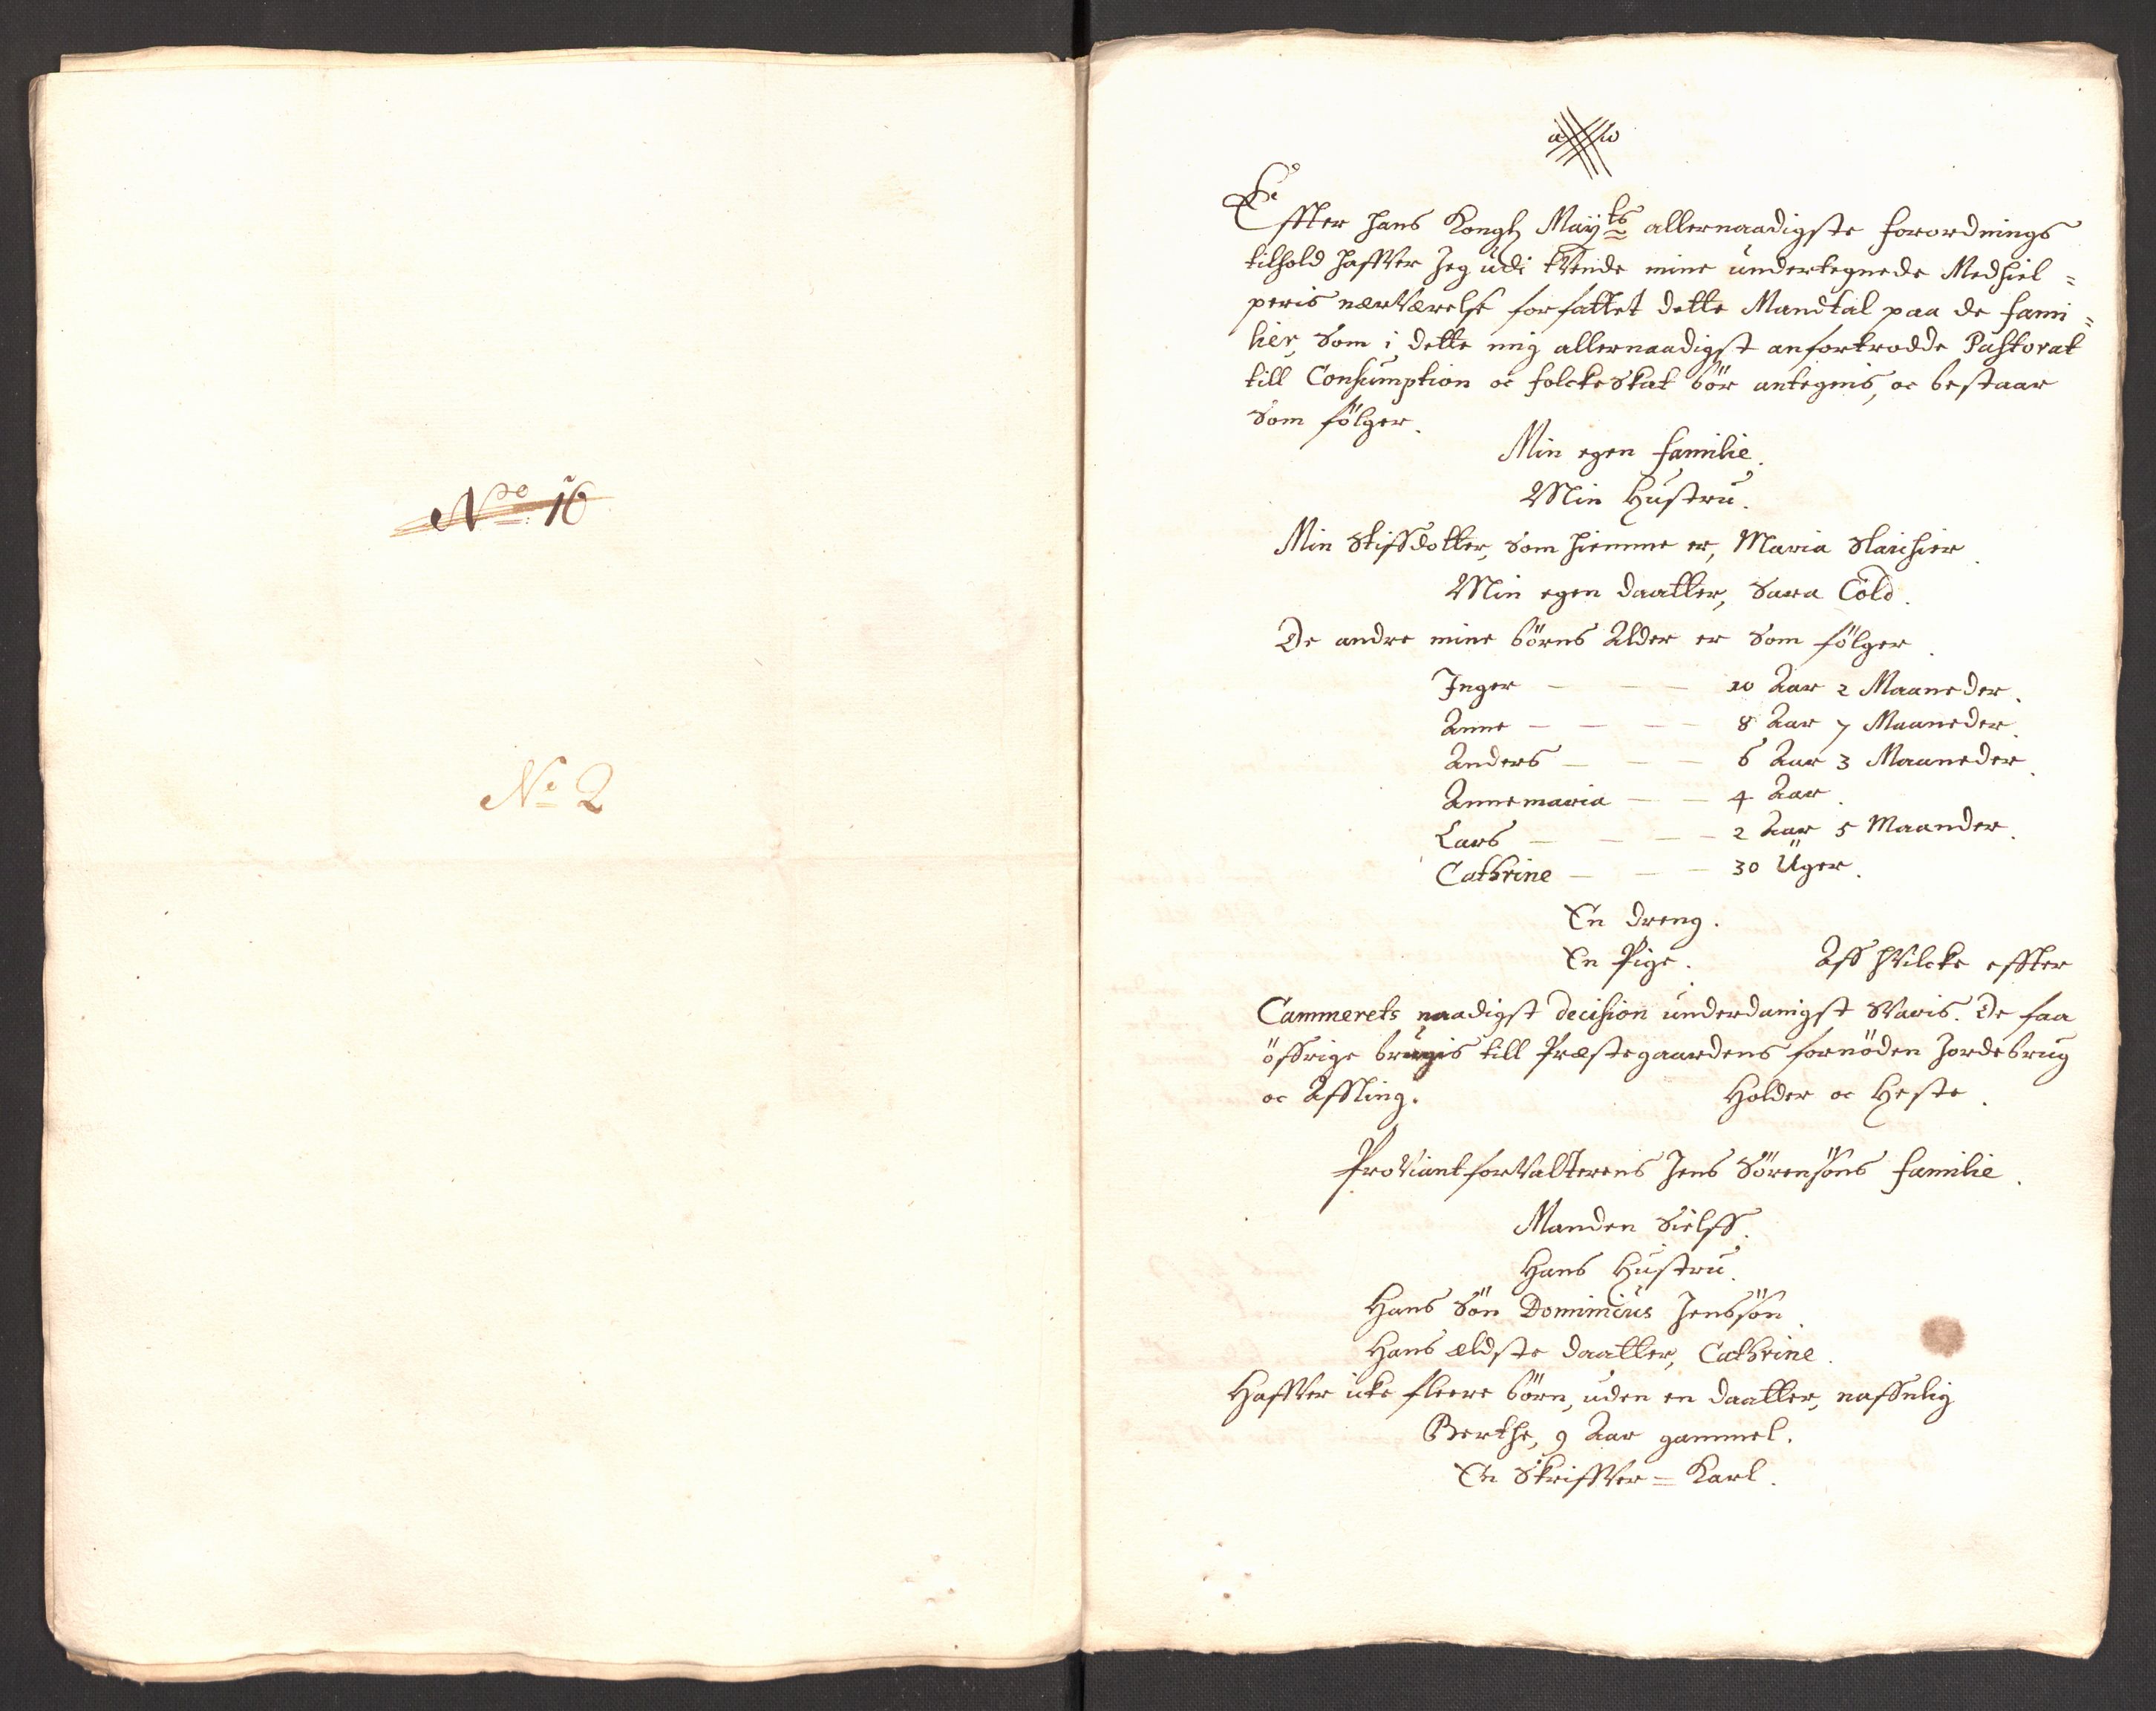 No 16
No 2
a w
Effter hans Kongl Mayts allernaadigste forordnings
tilhold haffver Jeg udi tvende mine undertegnede Medhiel=
peris nærværelse forfattet dette Mandtal paa de fami=
lier, som i dette mig allernaadigst anfortrodde Pastorat
till Consumption oc folckeskat bör antegnis, oc bestaar
som fölger.
Min egen familie.
Min Hustru.
Min stiffdotter, som hiemme er, Maria
Min egen daatter, Sara Cold.
De andre mine börns Alder er som fölger.
Inger — — — 10 Aar 2 Maaneder.
Anne — — — — 8 Aar 7 Maaneder.
Anders — — — 6 Aar 3 Maaneder.
Annemaria — — 4 Aar.
Lars — — — — 2 Aar 5 Maander.
Cathrine — — — 30 Uger.
En dreng.
En Pige. Aff hvilcke effter
Cammerets naadigst decision underdanigst svaris. De faa
öffrige brugis till Præstegaardens fornöden Jordebrug
oc Affling. Holder oc Heste.
Proviantforvalterens Jens Sörensöns familie.
Manden sielff.
Hans Hustru.
Hans Sön Dominicus Jenssön.
Hans eldste daatter, Cathrine.
Haffver icke fleere börn, uden en daatter, naffnlig
Berthe, 9 Aar gammel.
En Skriffver = Karl.